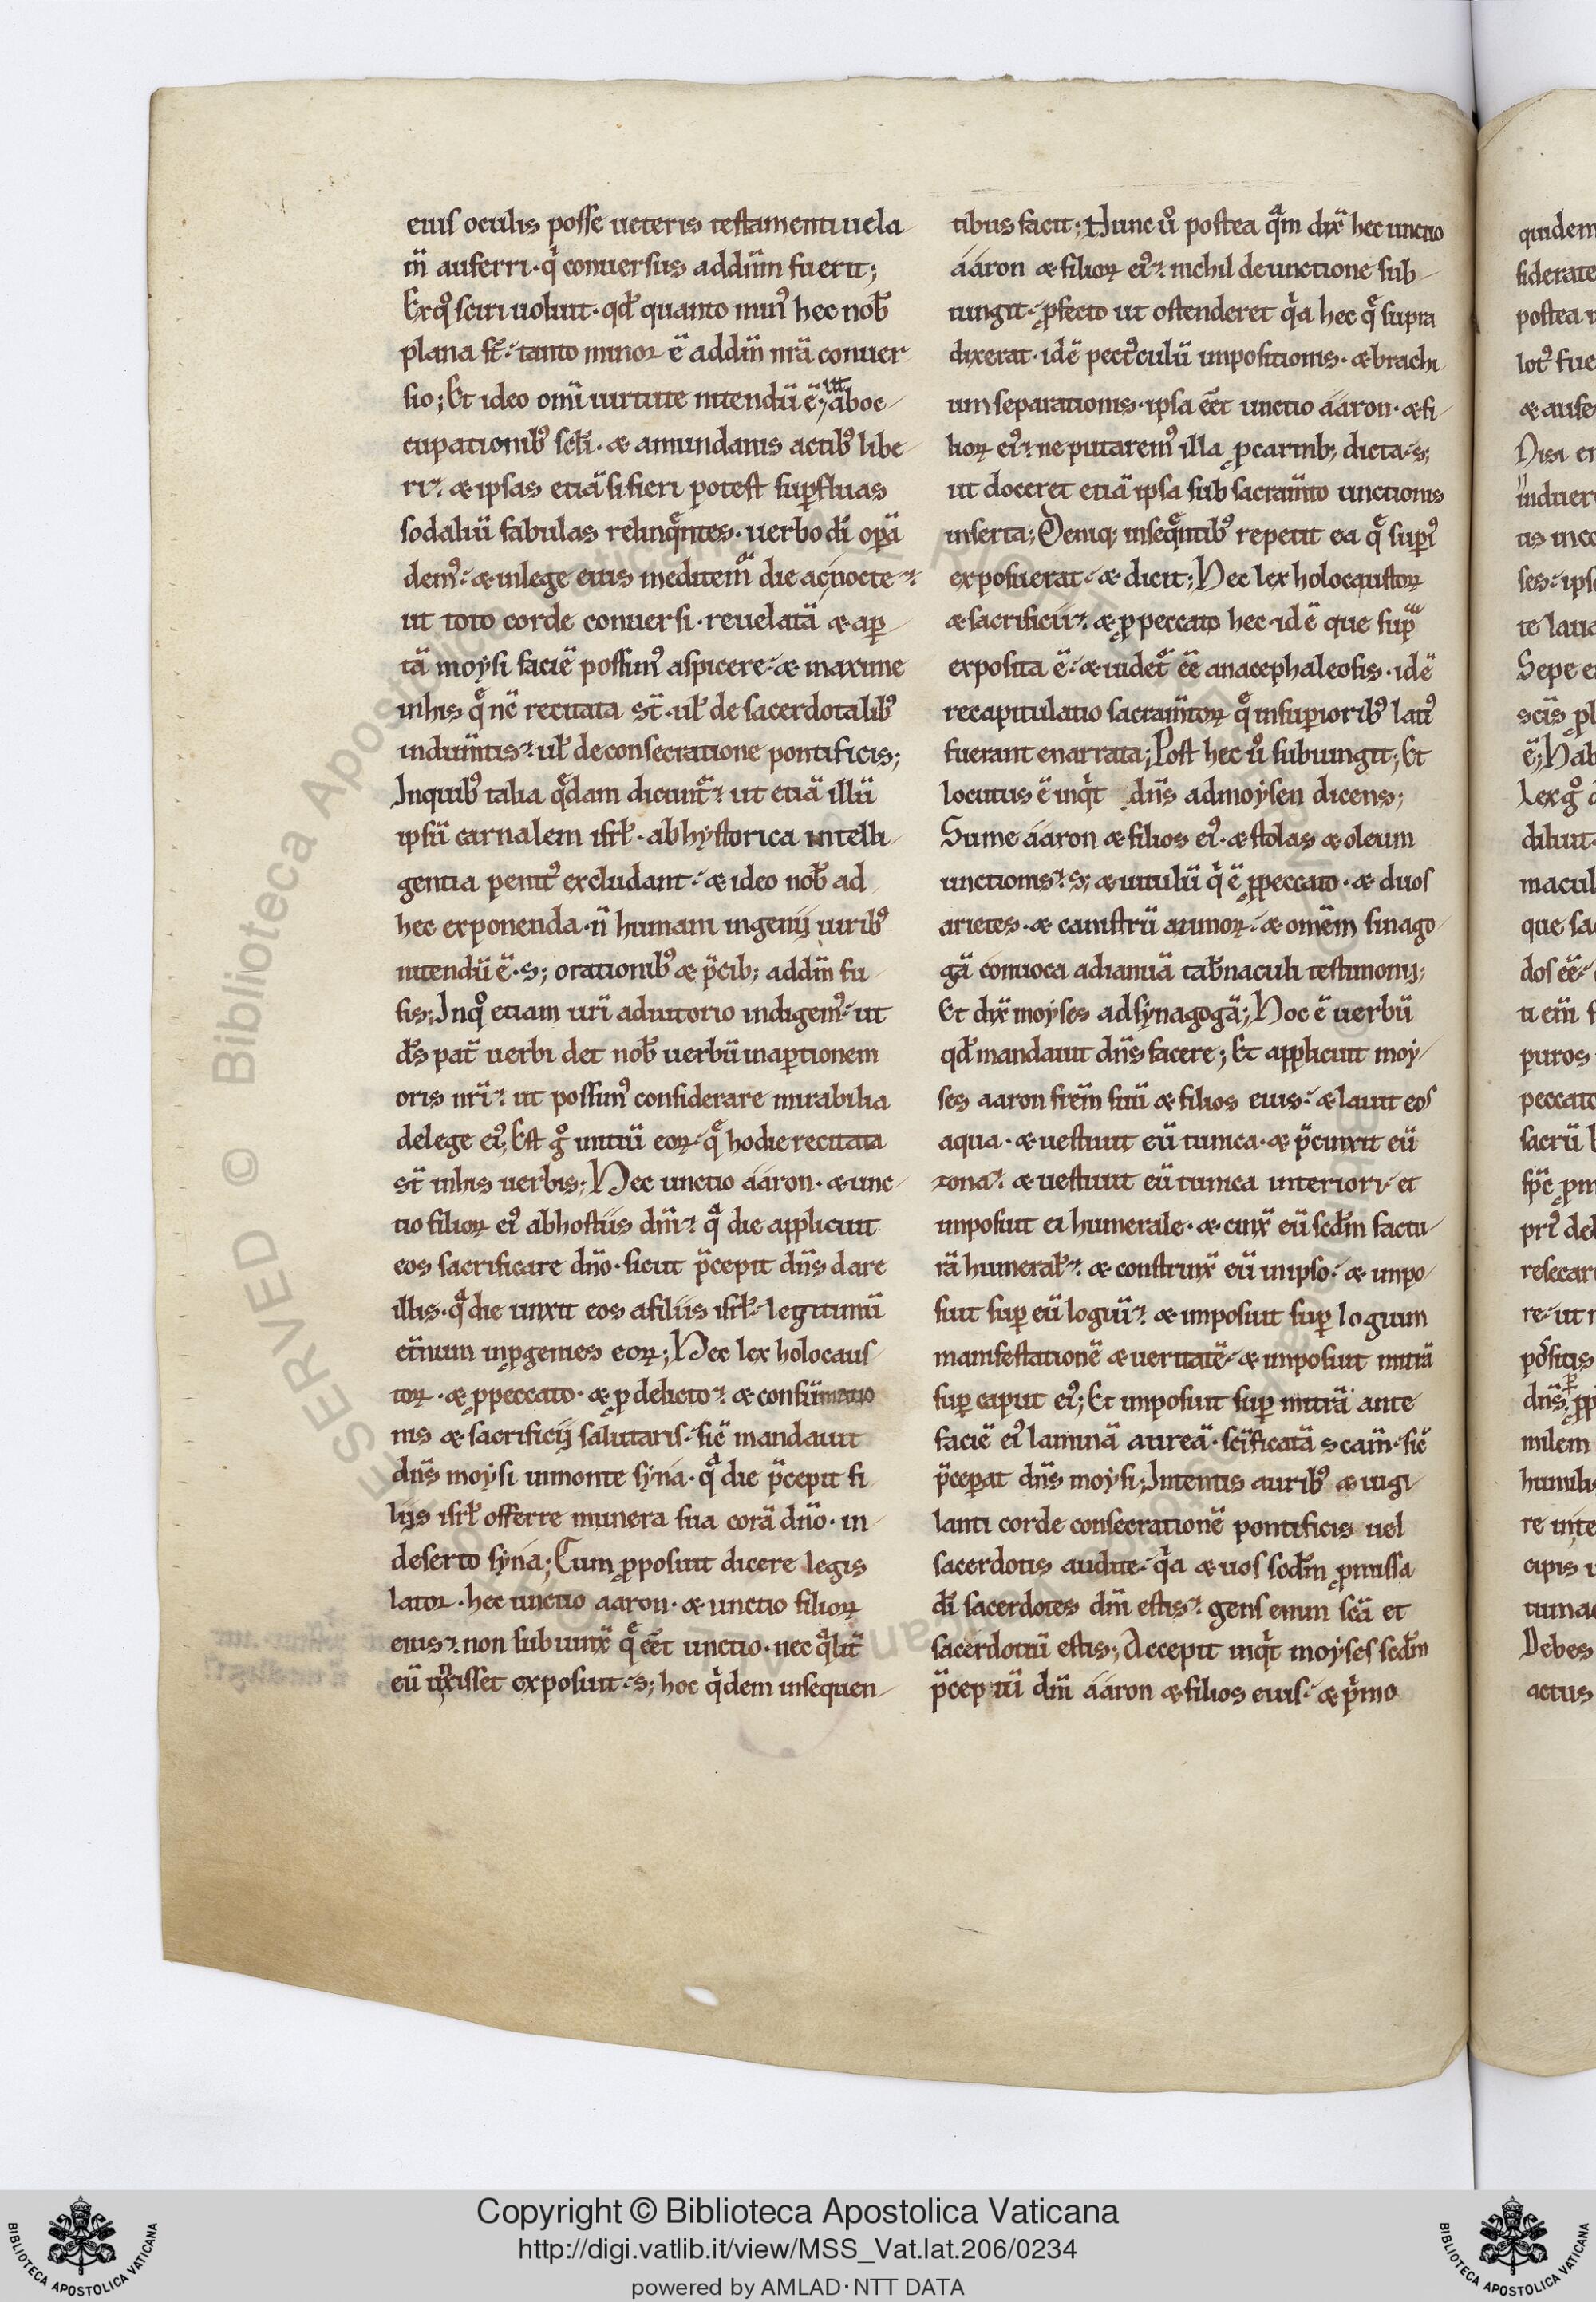 eius oculis posse ueteris testamenti uela
m̅ auferri · q͛ conuersus addn̅m fuerit;
Ex q̊ sciri uoluit · qđ quanto min᾿ hec nob̅
plana st̅ · tanto minor ē addn̅m nr̅ā conuer
sio; Et ideo omi̅ uirtute nitendū ē, ut aboc-
cupationib᾿ sc̅li · & amundanis actib᾿ libe-
ri · & ipsas etiā si fieri potest suꝑfluas
sodaliū fabulas relinq̅ntes · uerbo di̅ oꝑā
dem᾿ · & inlege eius meditem̅ die ac nocte
ut toto corde conuersi · reuelatā & aꝑ-
tā moysi faciē possim᾿ aspicere · & maxime
inhis q̅ nc̅ recitata st̅ · ul̅ de sacerdotalib᾿
indum̅tis · ul̅ deconsecratione pontificis;
Inquib᾿ talia q̅dam dicunt̅ · ut etiā illū
ipsū carnalem isrl̅ · abhystorica intelli
gentia penit᾿ excludant · & ideo nob̅ ad
hec exponenda · n̅ humani ingenij uirib᾿
nitendū ē · s; orationib᾿ & p̅cib; addn̅m fu
sis; Inq̊ etiam uri̅ adiutorio indigem᾿ · ut
ds̅ pat̅ uerbi det nob̅ uerbū inaꝑtionem
oris nri̅ · ut possim᾿ considerare mirabilia
delege ei᾿; Est g̊ initiū eoꝝ · q̅ hodie recitata
st̅ inhis uerbis; Hec unctio aaron · & unc-
tio filioꝝ ei᾿ abhostiis dni̅ · qͣ die applicuit
eos sacrificare dn̅o · sicut p̅cepit dn̅s dare
illis · qͣ die unxit eos afiliis isrl̅ · legitimū
et̅num inꝓgenies eoꝝ; Hec lex holocaus
toꝝ · & ꝓpeccato · & ꝓ delicto · & consūmatio
nis & sacrificij salutaris · sic̅ mandauit
dn̅s moysi inmonte syna · qͣ die p̅cepit fi
lijs isrl̅ offerre munera sua corā dn̅o · in
deserto syna; Cum ꝓposuit dicere legis
lator · hec unctio aaron · & unctio filioꝝ
eius · non subiunx̅ q̅ ee̅t unctio · nec qͣlit̅
eū unxisset exposuit · s; hoc q͛dem insequen-
tibus facit; Hunc ů postea qͣm dix̅ hec unctio
aaron & filioꝝ ei᾿ · nichil deunctione sub-
iungit · ꝓfecto ut ostenderet q͛a hec q̅ supra
dixerat · idē pect᾿culū impositionis · & brachi-
um separationis · ipsa ee̅t unctio aaron · & fi-
lioꝝ ei᾿ · ne putarem᾿ illa ꝓcarnib; dicta · s;
ut doceret etiā ipsa sub sacram̅to unctionis
inserta; Deniq; inseq̅ntib᾿ repetit ea q̅ suꝑi᾿
exposuerat · & dicit; Hec lex holocaustoꝝ
& sacrificii · & ꝓ peccato hec · id ē que suꝑ
exposita ē · & uidet̅ ee̅ anacephaleosis · idē
recapitulatio sacram̅toꝝ q̅ insuꝑiorib᾿ lati᾿
fuerant enarrata; Post hec ů subiungit; Et
locutus ē inq͛t dn̅s admoysen dicens;
Sume aaron & filios ei᾿ · & stolas & oleum
unctionis · s; & uitulū q͛ ē ꝓpeccato · & duos
arietes · & canistrū azimoꝝ · & omēm sinago-
gā conuoca adianuā tab̅naculi testimonij;
Et dix̅ moyses adsynagogā; Hoc ē uerbū
qđ mandauit dn̅s facere; Et applicuit moy-
ses aaron fr̅em suū & filios eius · & lauit eos
aqua · & uestiuit eū tunica · & p̅cinxit eū
zona · & uestiuit eū tunica interiori · et
imposuit ei humerale · & cinx̅ eū scdm̅ factu-
rā humeral̅ · & construx̅ eū inipso · & impo-
suit suꝑ eū logiū · & imposuit suꝑ logium
manifestationē & ueritatē · & imposuit mitrā
suꝑ caput ei᾿; Et imposuit suꝑ mitrā ante
faciē ei᾿ laminā aureā · sc̅ificatā sc̅am · sic̅
p̅ceꝑat dn̅s moysi; Intentis aurib᾿ & uigi-
lanti corde consecrationē pontificis uel
sacerdotis audite · q͛a & uos scdm̅ ꝓmissa
di̅ sacerdotes dni̅ estis · gens enim sc̅a et
sacerdotiū estis; Accepit inq͛t moyses scdm̅
p̅ceptū dni̅ aaron & filios eius · & p͛mo